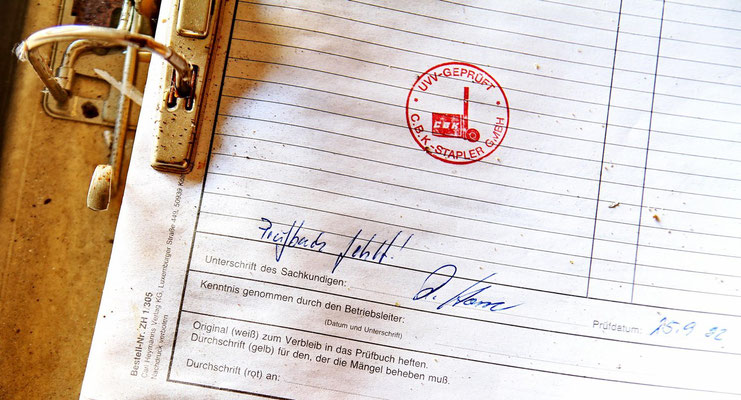 UVV-GEPRÜFT
CBK
C.B.K.-STAPLER GMBH
Prüfbuch fehlt!
Unterschrift des Sachkundigen:
Kenntnis genommen durch den Betriebsleiter:
(Datum und Unterschrift)
Prüfdatum: 15.9.92
Original (weiß) zum Verbleib in das Prüfbuch heften.
Durchschrift (gelb) für den, der die Mängel beheben muß.
Durchschrift (rot) an:
Bestell-Nr. ZH 1/305
Carl Heymanns Verlag KG, Luxemburger Straße 449, 50939
Nachdruck verboten